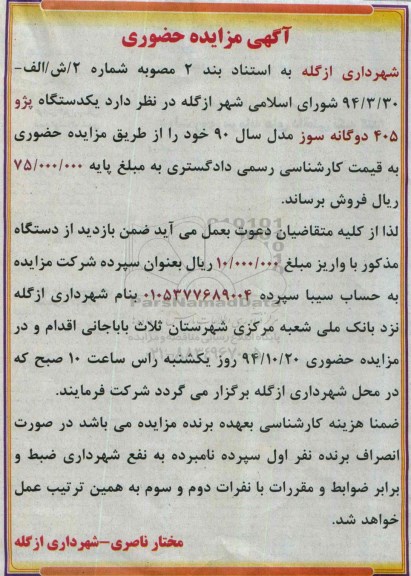 آگهی مزایده حضوری
شهرداری ازگله به استناد بند ۲ مصوبه شماره ۲/ش/الف-
۹۴/۳/۳۰ شورای اسلامی شهر ازگله در نظر دارد یکدستگاه پژو
۴۰۵ دوگانه سوز مدل سال ۹۰ خود را از طریق مزایده حضوری
به قیمت کارشناسی رسمی دادگستری به مبلغ پایه ۷۵/۰۰۰/۰۰۰
ریال فروش برساند.
لذا از کلیه متقاضیان دعوت بعمل می آید ضمن بازدید از دستگاه
مذکور با واریز مبلغ ۱۰/۰۰۰/۰۰۰ ریال بعنوان سپرده شرکت مزایده
به حساب سیبا سپرده ۰۱۰۵۳۷۷۶۸۹۰۰۴ بنام شهرداری ازگله
نزد بانک ملی شعبه مرکزی شهرستان ثلاث باباجانی اقدام و در
مزایده حضوری ۹۴/۱۰/۲۰ روز یکشنبه راس ساعت ۱۰ صبح که
در محل شهرداری ازگله برگزار می گردد شرکت فرمایند.
ضمنا هزینه کارشناسی بعهده برنده مزایده می باشد در صورت
انصراف برنده نفر اول سپرده نامبرده به نفع شهرداری ضبط و
برابر ضوابط و مقررات با نفرات دوم و سوم به همین ترتیب عمل
خواهد شد.
مختار ناصری-شهرداری ازگله
ParsNamadData